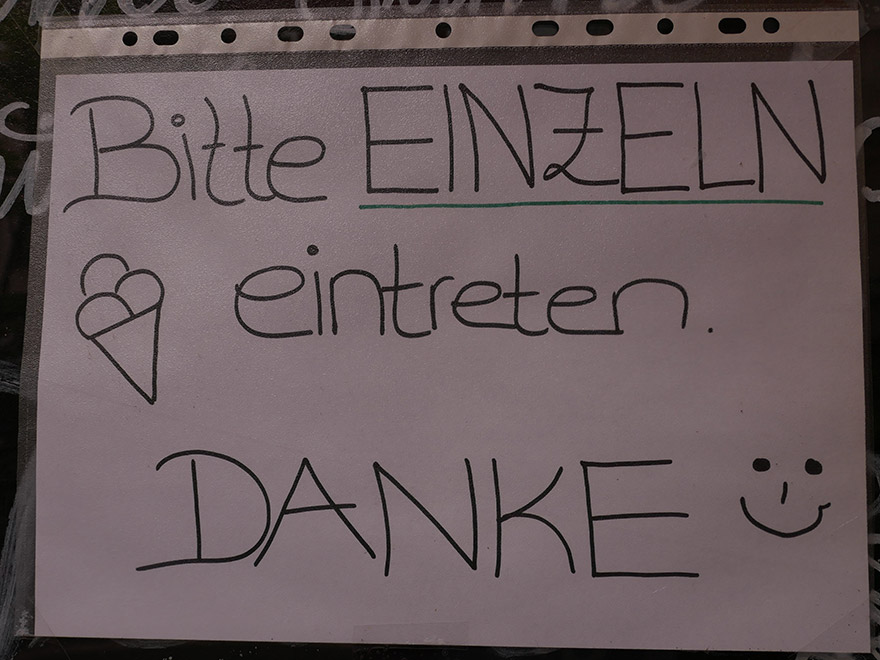 Bitte EINZELN
eintreten.
DANKE